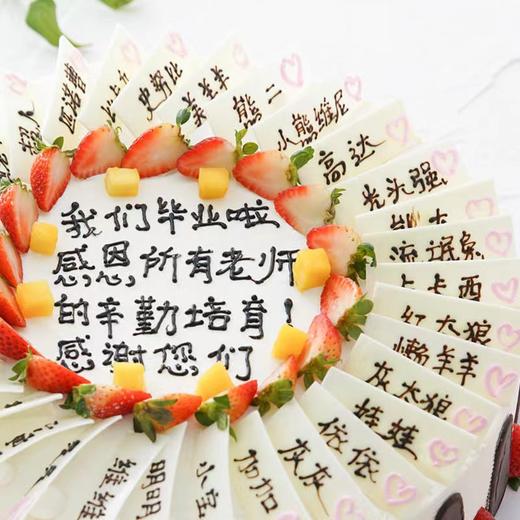 我们毕业啦
感恩,所有老师
的辛勤培育!
感谢您们
超人
史努比
美羊羊
熊二
小熊维尼
高达
光头强
流氓兔
卡卡西
红太狼
懒羊羊
灰太狼
娃娃
依依
灰灰
加加
小宝
明明
维维